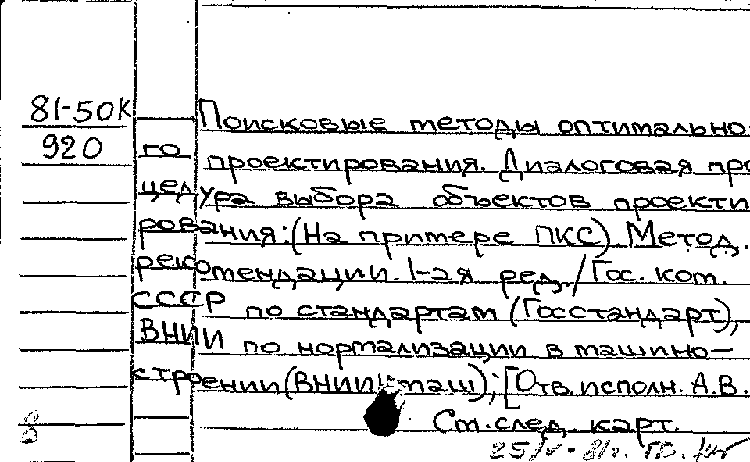 81-50К
920
Поисковые методы оптимально
го проектирования. Диалоговая про
цедура выбора объектов проекти
рования: (На примере ПКС). Метод.
рекомендации. 1-ая ред. / Гос. ком.
СССР по стандартам (Госстандарт),
ВНИИ по нормализации в машино-
строении (ВНИИнмаш); [Отв. исполн. А.В.
См. след. карт.